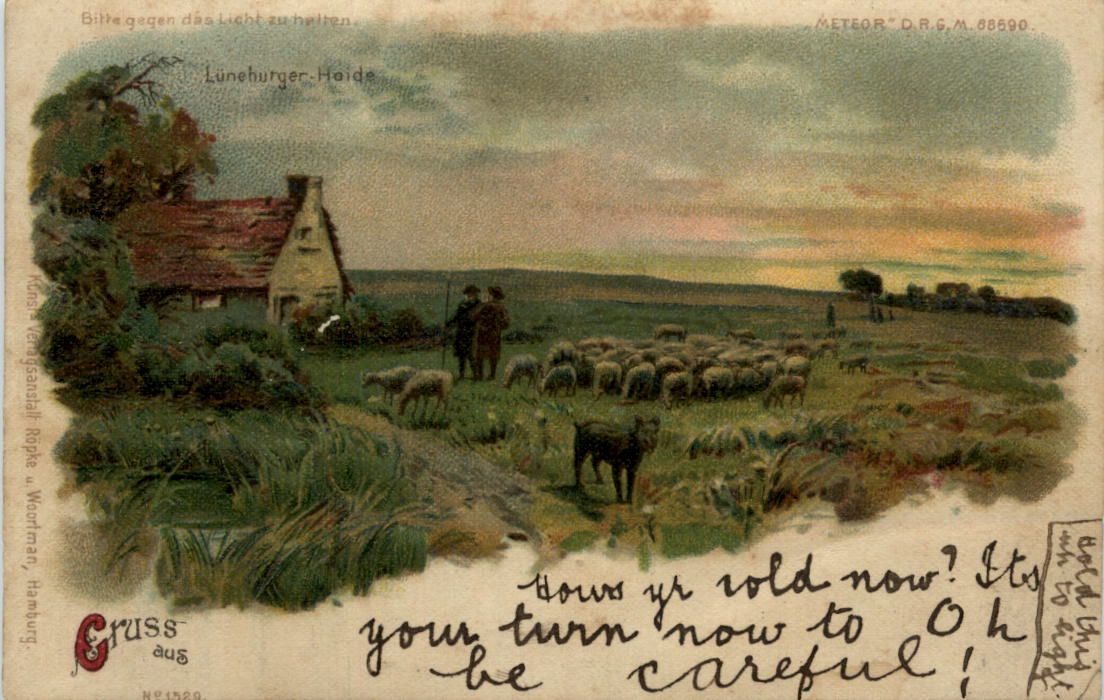 Bitte gegen das Licht zu halten.
„METEOR" D.R.G.M. 88690.
Lüneburger-Haide
Kunst Verlagsanstalt Röpke u. Woortman, Hamburg.
Gruss
aus
No 1529.
Hows yr cold now? Its
your turn now to Oh
be careful!
Hold this
up to light.